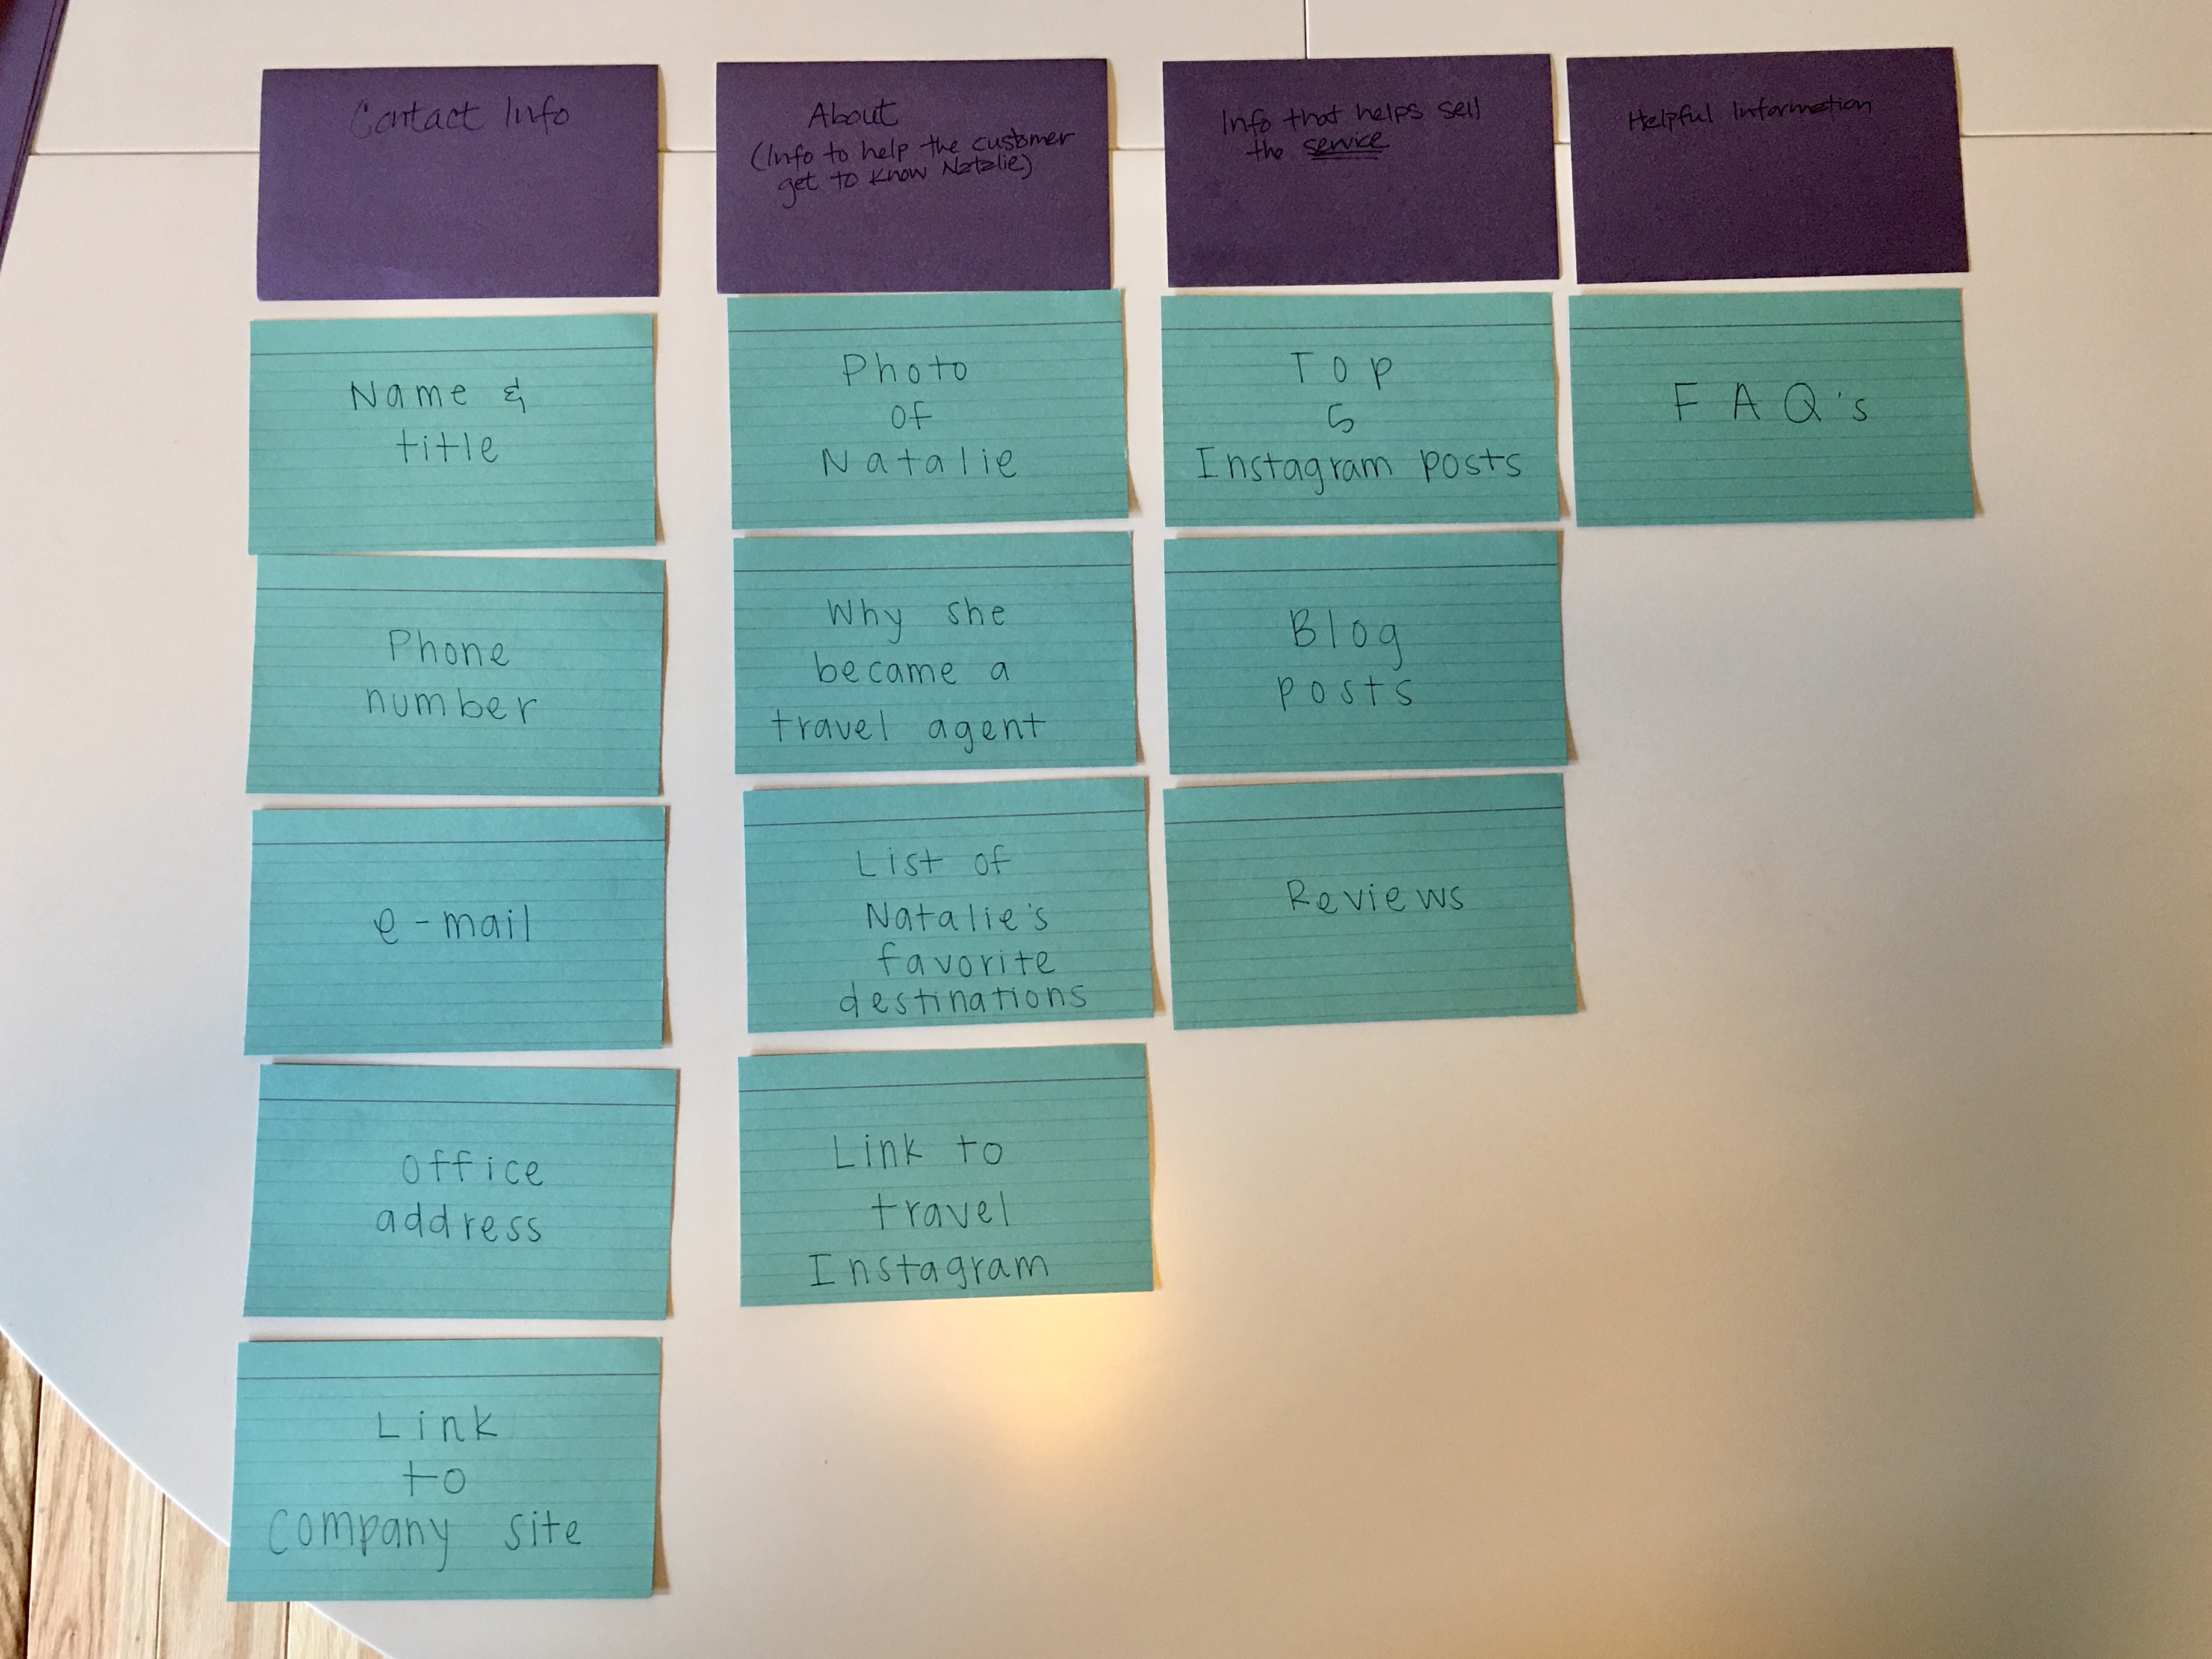 Contact Info
Name &
title
Phone
number
e-mail
Office
address
Link
to
Company site
About
(Info to help the customer
get to know Natalie)
Photo
of
Natalie
Why she
became a
travel agent
List of
Natalie's
favorite
destinations
Link to
travel
Instagram
Info that helps sell
the service
Top
5
Instagram posts
Blog
posts
Reviews
Helpful Information
FAQ's